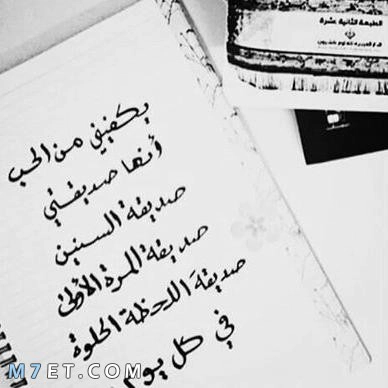 الطبعة الثانية عشرة
يكفيني من الحب
أنها صديقتي
صديقة السنين
صديقة المرة الأولى
صديقة اللحظة الحلوة
في كل يوم
M7ET.COM